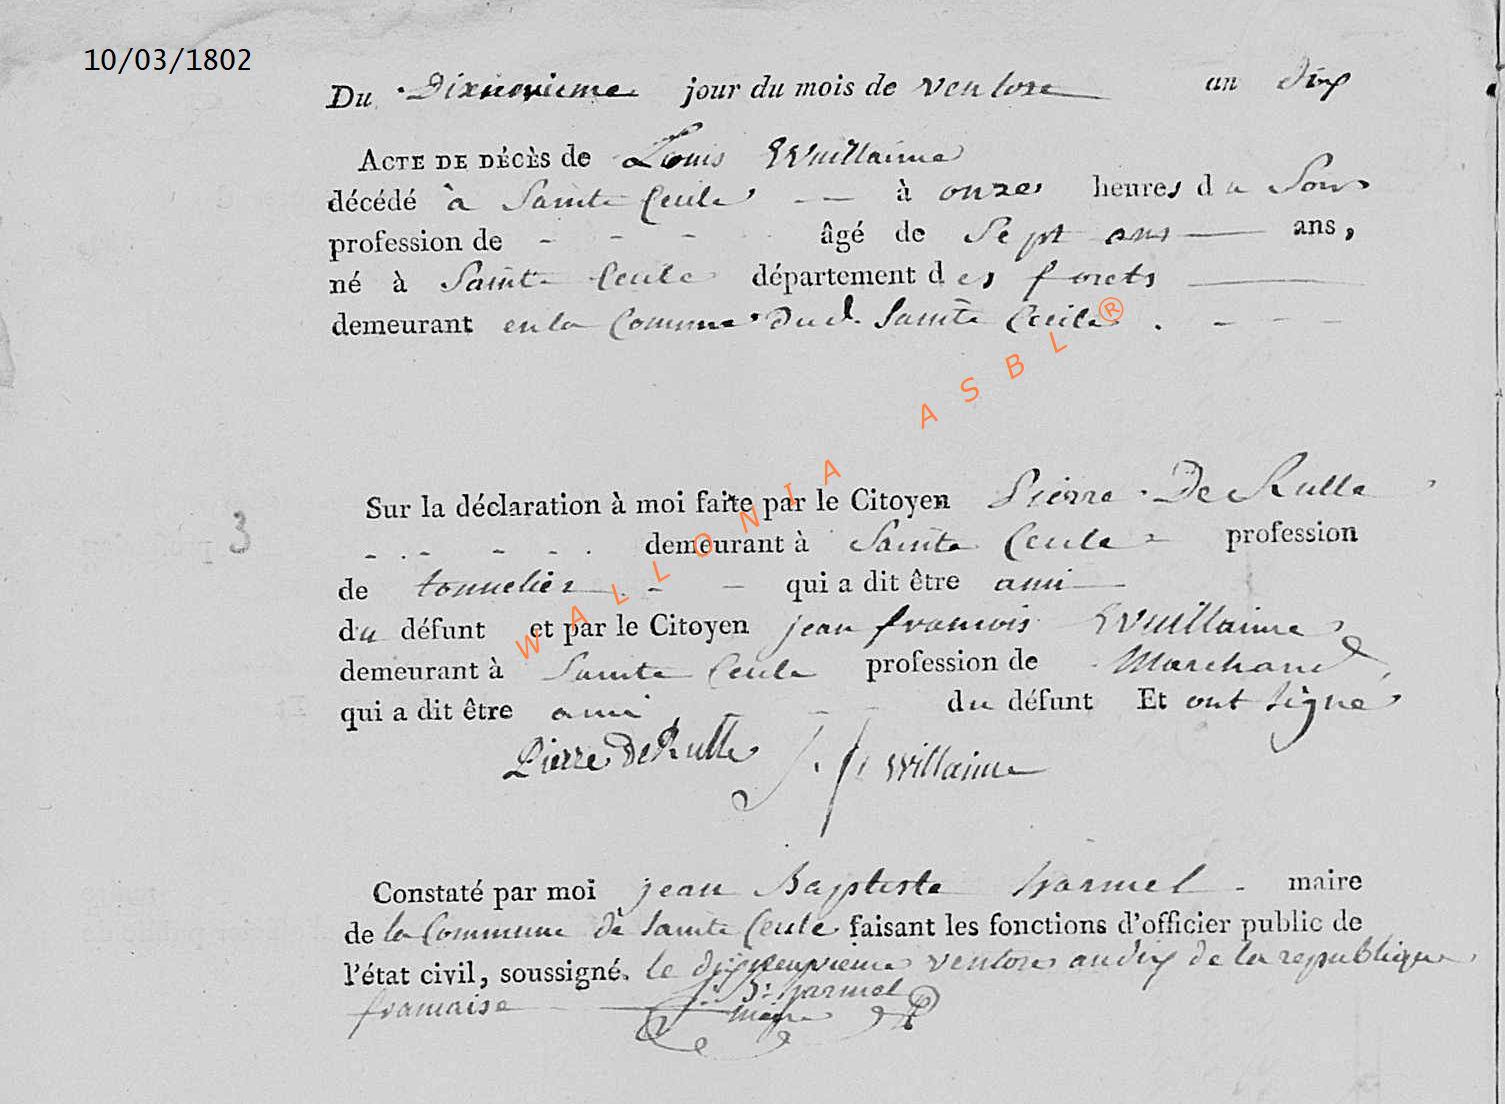 10/03/1802
Du Dixneuvieme jour du mois de ventose an dix
ACTE DE DÉCÈS de Louis Wuillaime
décédé à Sainte Cecile à onze heures du Soir
profession de - - - - âgé de Sept ans ans,
né à Sainte Cecile département des forets
demeurant en la Commune dud. Sainte Cecile . - - -
Sur la déclaration à moi faite par le Citoyen Pierre De Rulle
demeurant à Sainte Cecile profession
de tonnelier - - qui a dit être ami
du défunt et par le Citoyen jean francois Wuillaime
demeurant à Sainte Cecile profession de Marchand
qui a dit être ami - - - du défunt Et ont signé
Pierre De Rulle J. f. Willaime
Constaté par moi jean Baptiste harmel - maire
de la Commune de Sainte Cecile faisant les fonctions d'officier public de
l'état civil, soussigné. le dixneuvieme ventose an dix de la republique
francaise
J. B. harmel
maire
3
WALLONIA ASBL®